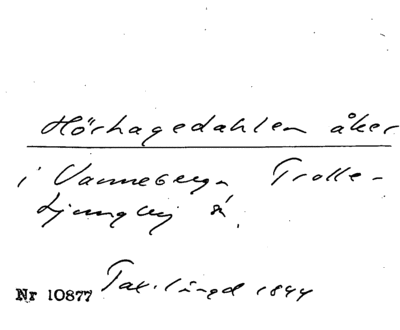 Hörhagedahlen åker
i Vanneberga Trolle-
Ljungby sn.
Nr 10877 Tax. längd 1844